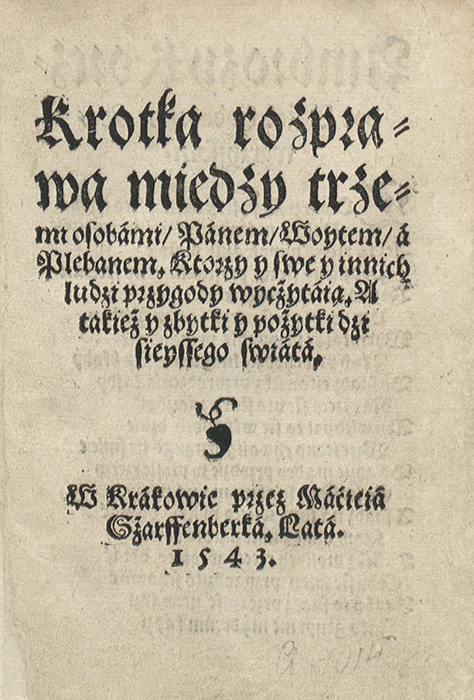 Krotka rozpra⸗
wa miedzy trze⸗
mi osobámi/ Pánem/ Woytem/ á
Plebanem. Ktorzy y swe y innich
ludzi przygody wyczytáią. A
takież y zbytki y pożytki dzi
sieyssego swiátá.
W Krákowie przez Máćieiá
Szarffenberká. Látá.
1 5 4 3 .